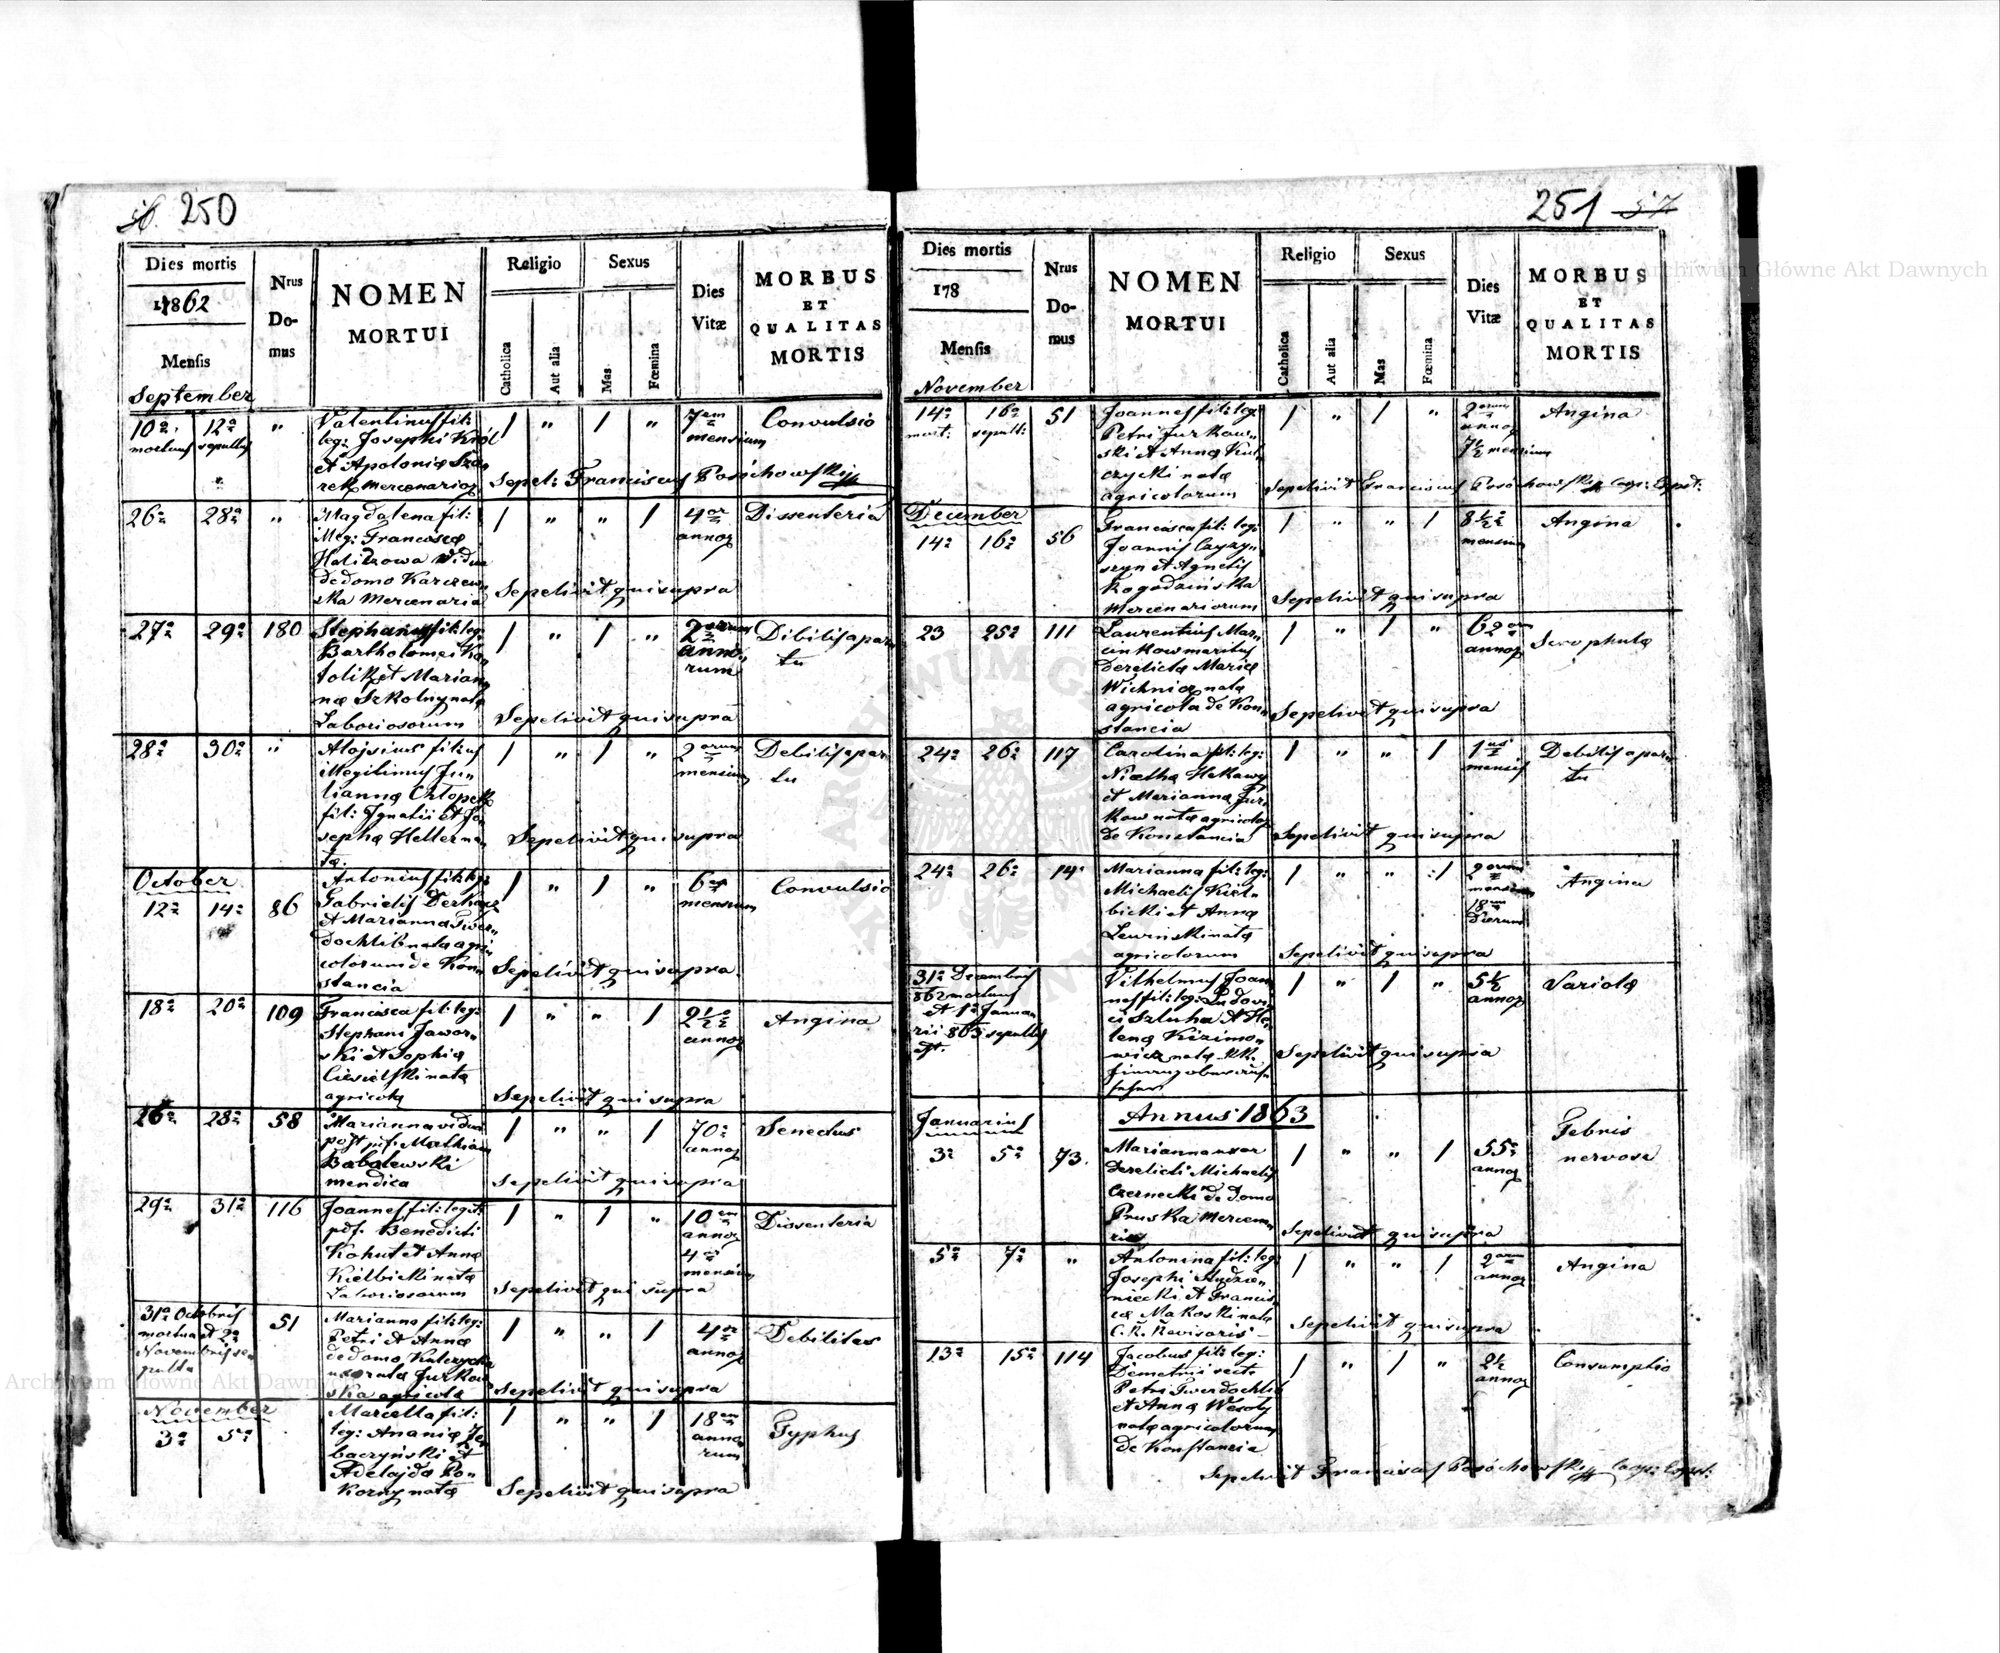 250
Dies mortis
Nrus Domus
NOMEN MORTUI
Religio
Sexus
Dies Vitæ
MORBUS ET QUALITAS MORTIS
1862
Mensis
Catholica
Aut alia
Mas
Fœmina
September
10a mortuus 12a sepultus " Valentinus fil:
leg: Josephi Król
et Apolonia
mercenarior
1 " 1 " 7em mensium Convulsio
Sepel: Franciscus Posóchowski
26a 28a " Magdalena fil:
illeg: Francisca
vidua
de domo
mercenaria
1 " " 1 4or annor Dissenteria
Sepelivit qui supra
27a 29a 180 Stephanus fil: leg:
Bartholomei
et Marian
na Szkolny nata
Laboriosorum
1 " 1 " 2orum annorum Dibilis a partu
Sepelivit qui supra
28a 30a " Alojsius filius
illegitimus Ju
lianna Chłopek
fil: Ignatii et Jo
sepha Heller na
ta.
1 " 1 " 2orum mensium Debilis a partu
Sepelivit qui supra
October
12a 14a 86 Antonius fil: leg:
Gabrielis Derkacz
et Marianna Twer
dochlib nata agri
colorum de Kon
stancia
1 " 1 " 6 mensium Convulsio
Sepelivit qui supra
18a 20a 109 Francisca fil: leg:
Stephani Jawor
ski et Sophia
Ciesielski nata
agricola
1 " " 1 2 1/2 annor Angina
Sepelivit qui supra
26a 28a 58 Marianna vidua
post pif: Mathiam
Babalewski
mendica
1 " " 1 70a annor Senectus
Sepelivit qui supra
29a 31a 116 Joannes fil: legit:
pdf. Benedicti
Kohut et Anna
Kielbicki nata
Laboriosorum
1 " 1 " 10em annor 4or mensium Dissenteria
Sepelivit qui supra
31a Octobris
mortua et 2a
Novembris se
pulta
51 Marianna fil: leg:
Petri et Anna
de domo Kulczycka
Jurkow
ska agricola
1 " " 1 4or annor Debilitas
Sepelivit qui supra
November
3a 5a Marcella fil:
leg: Anania
baczyński et
Adelajda Po
korny nata
1 " " 1 18em annorum Typhus
Sepelivit qui supra
251 57
Dies mortis
Nrus Domus
NOMEN MORTUI
Religio
Sexus
Dies Vitæ
MORBUS ET QUALITAS MORTIS
178
Mensis
Catholica
Aut alia
Mas
Fœmina
November
14a mort: 16a sepult: 51 Joannes fil: leg:
Petri Jurkow
ski et Anna Kul
czycki nata
agricolorum
1 " 1 " 2orum annor 7 1/2 mensium Angina
Sepelivit Franciscus Posóchowski Coop: Expost:
December
14a 16a 56 Francisca fil: leg:
Joannis
et Agnetis
mercenariorum
1 " " 1 8 1/2 mensium Angina
Sepelivit qui supra
23 25a 111 Laurentius Mar
cinkow maritus
derelicta Maria
Wichnia nata
agricola de Kon
stancia
1 " 1 " 62 annor Scrophula
Sepelivit qui supra
24a 26a 117 Carolina fil: leg:
et Marianna Jur
kow nata agricolor
de Konstancia
1 " " 1 1us mensis Debilis a partu
Sepelivit qui supra
24a 26a 14 Marianna fil: leg:
Michaelis Kiel
bicki et Anna
Lewinski nata
agricolorum
1 " " 1 2orum mensium 18 dierum Angina
Sepelivit qui supra
31a Decembris
862 mortuus
et 1a Janua
rii 863 sepultus
est.
Vilhelmus Joan
nes fil: leg: Ludovi
ci Szluha et He
lena Kizimo
wicz nata KK.
1 " 1 " 5 1/2 annor Variola
Sepelivit qui supra
Annus 1863
Januarius
3a 5a 73. Marianna uxor
derelicti Michaelis
Czernecki de domo
Pruska mercena
ria
1 " " 1 55a annor Febris nervosa
Sepelivit qui supra
5a 7a " Antonina fil: leg:
Josephi
niecki et Francis
ca Makoski nata
C. K. Revisoris
1 " " 1 2orum annor Angina
Sepelivit qui supra
13a 15a 114 Jacobus fil: leg:
Demetrii recte
Petri Twerdochlib
et Anna Wesoły
nata agricolorum
de Konstancia
1 " 1 " 2 1/2 annor Consumptio
Sepelivit Franciscus Posóchowski Coop: Expost:
Archiwum Główne Akt Dawnych
Archiwum Główne Akt Dawnych